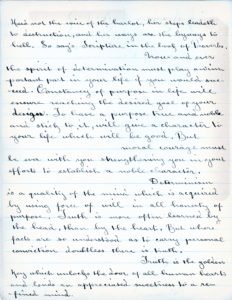 Heed not the voice of the harlot, her steps leadeth
to destruction, and her ways are the byways to
hell. So say's Scripture in the book of Proverbs.
Now and ever
the spirit of determination must play a very im-
portant part in your life if you would suc-
ceed. Constancy of purpose in life will
ensure reaching the desired goal of your
design. To have a purpose true and noble
and stick to it, will give a character to
your life which will be good. But
moral courage must
be ever with you strengthening you in your
efforts to establish a noble character.
Determinism
is a quality of the mind which is acquired
by using force of will in all honesty of
purpose. Truth is more often learned by
the head, than by the heart. But where
facts are so understood as to carry personal
conviction doubtless there is truth.
Truth is the golden
key which unlocks the door of all human hearts
and lends an appreciated sweetness to a re-
fined mind.